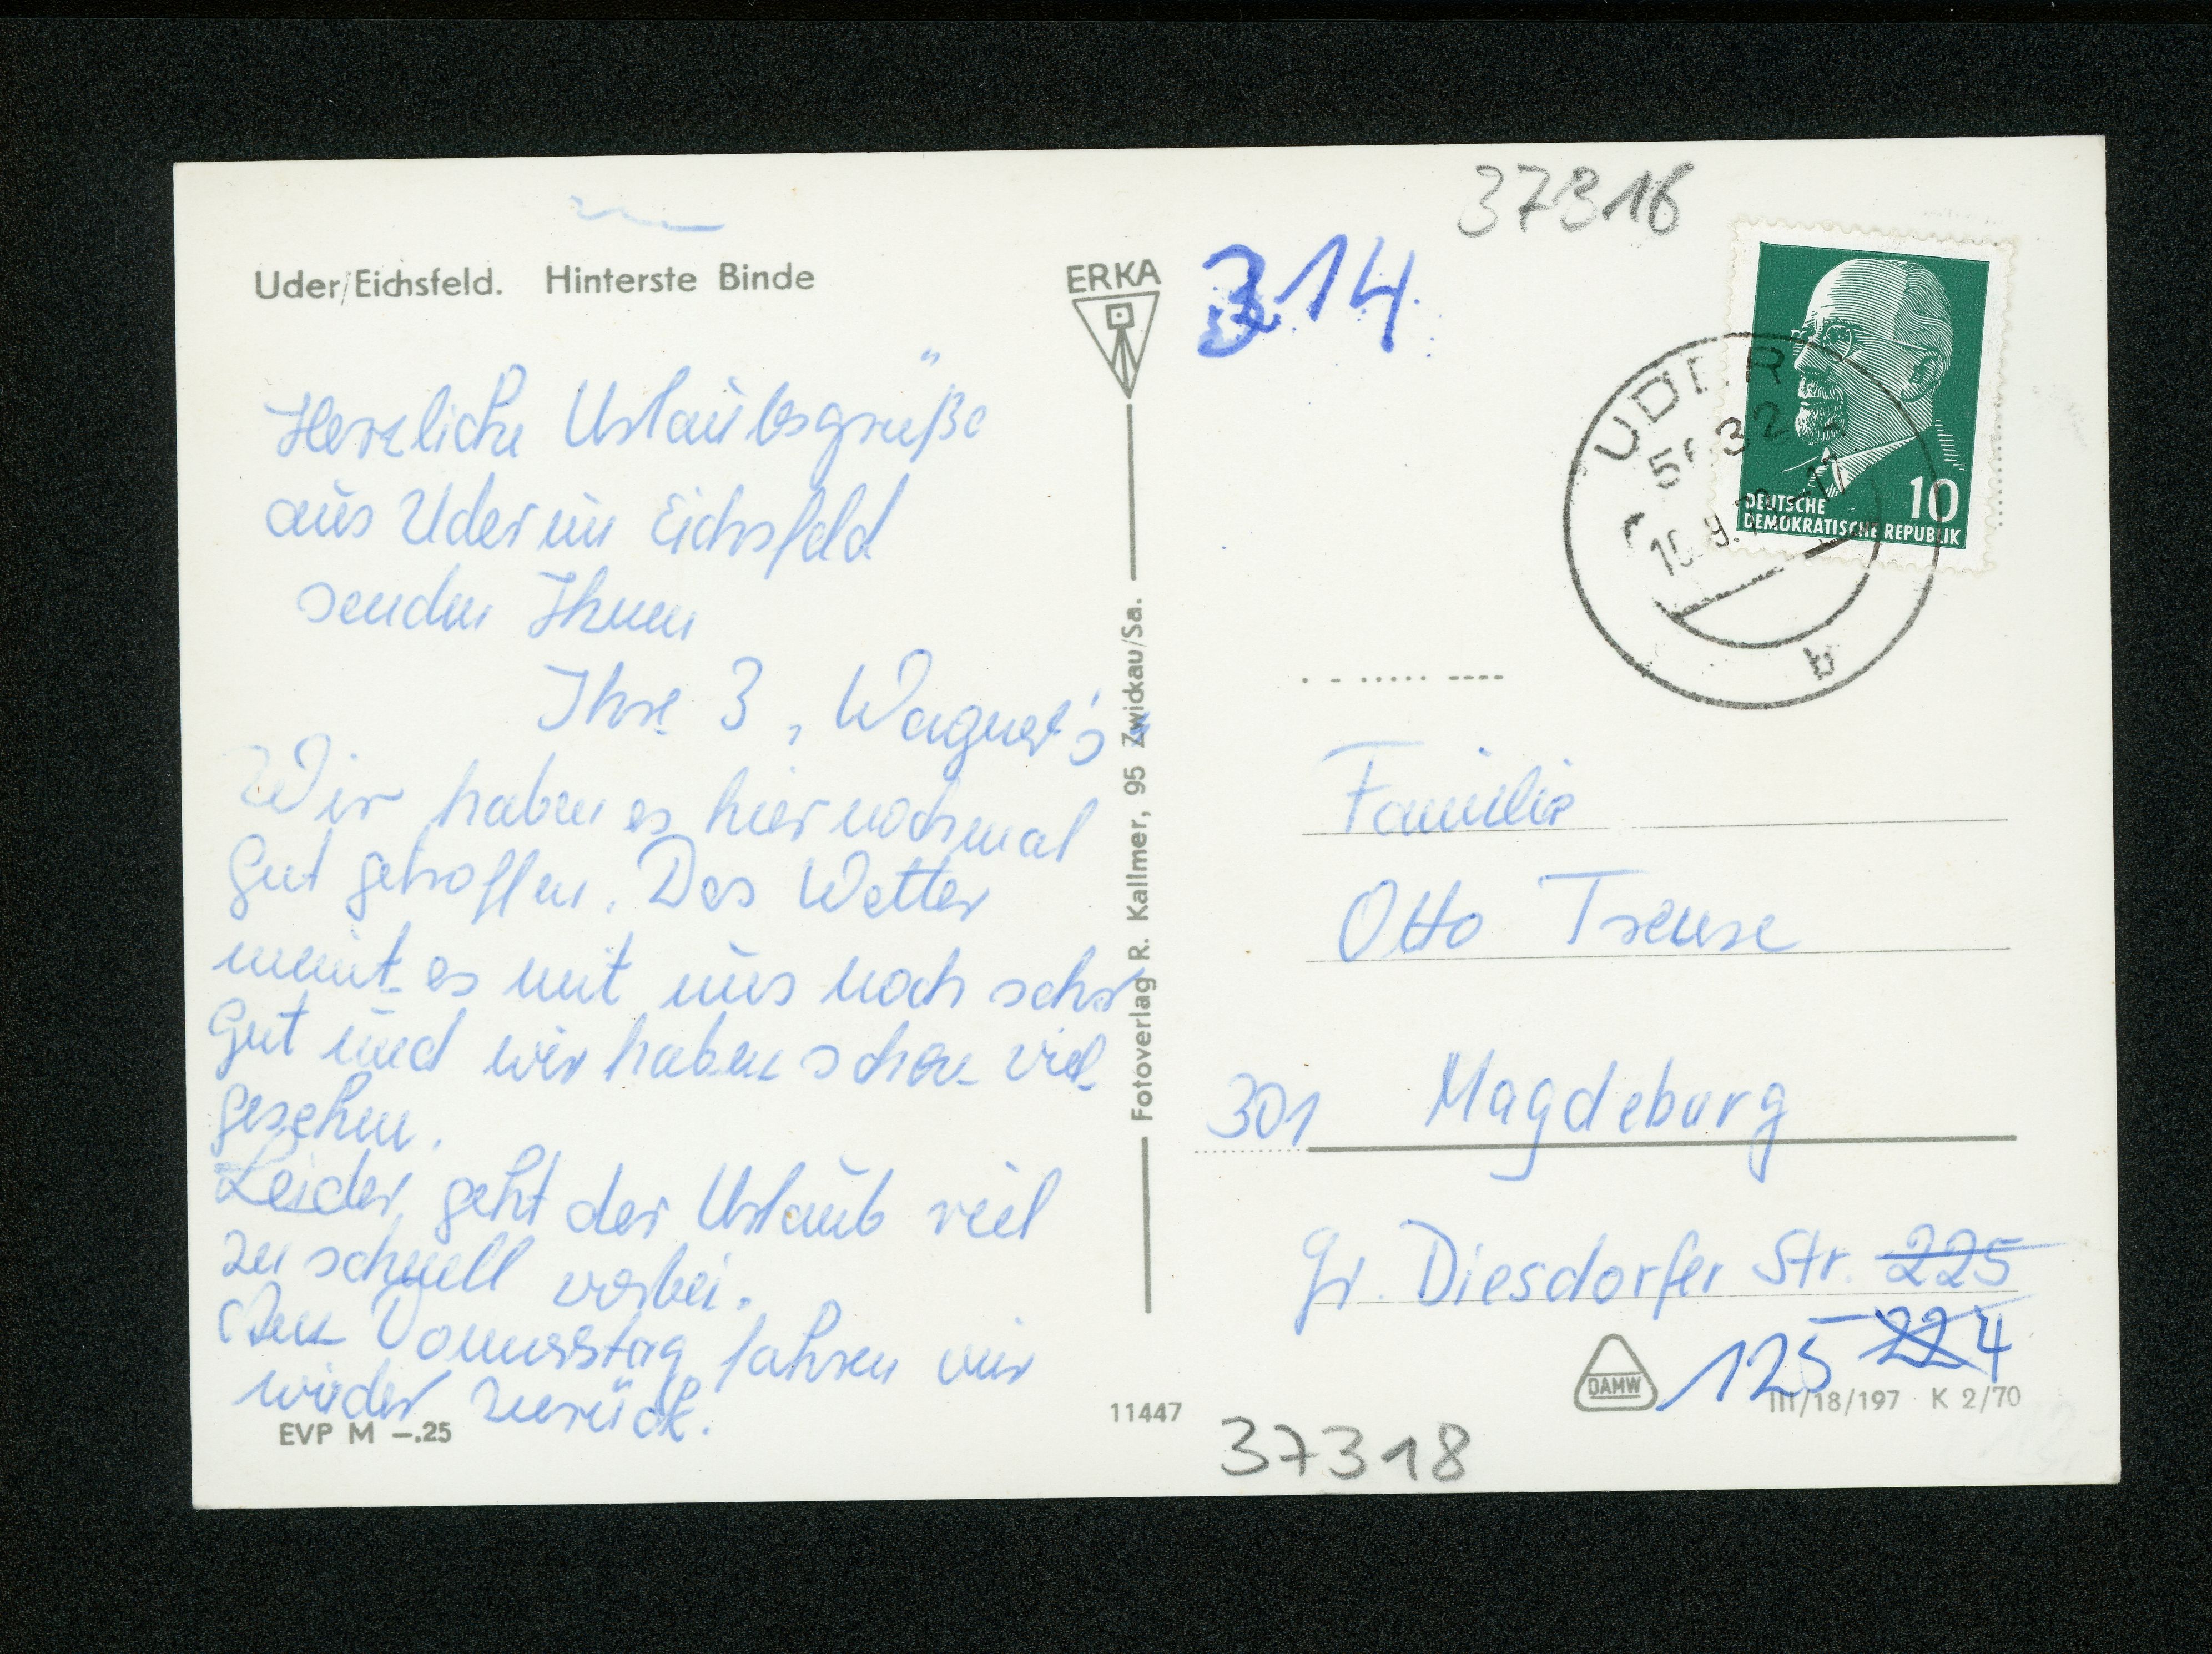 37316
Uder/Eichsfeld. Hinterste Binde
ERKA
314
Herzliche Urlaubsgrüße
aus Uder im Eichsfeld
senden Ihnen
Ihre 3 „Wagner's“
Wir haben es hier nochmal
gut getroffen. Das Wetter
meint es mit uns noch sehr
gut und wir haben schon viel
gesehen.
Leider geht der Urlaub viel
zu schnell vorbei.
Den Donnerstag fahren wir
wieder zurück.
EVP M –.25
Fotoverlag R. Kallmer, 95 Zwickau/Sa.
11447
10
DEUTSCHE
DEMOKRATISCHE REPUBLIK
UDER
b
Familie
Otto
301 Magdeburg
Gr. Diesdorfer Str. 225
125 224
DAMW
III/18/197 K 2/70
37318